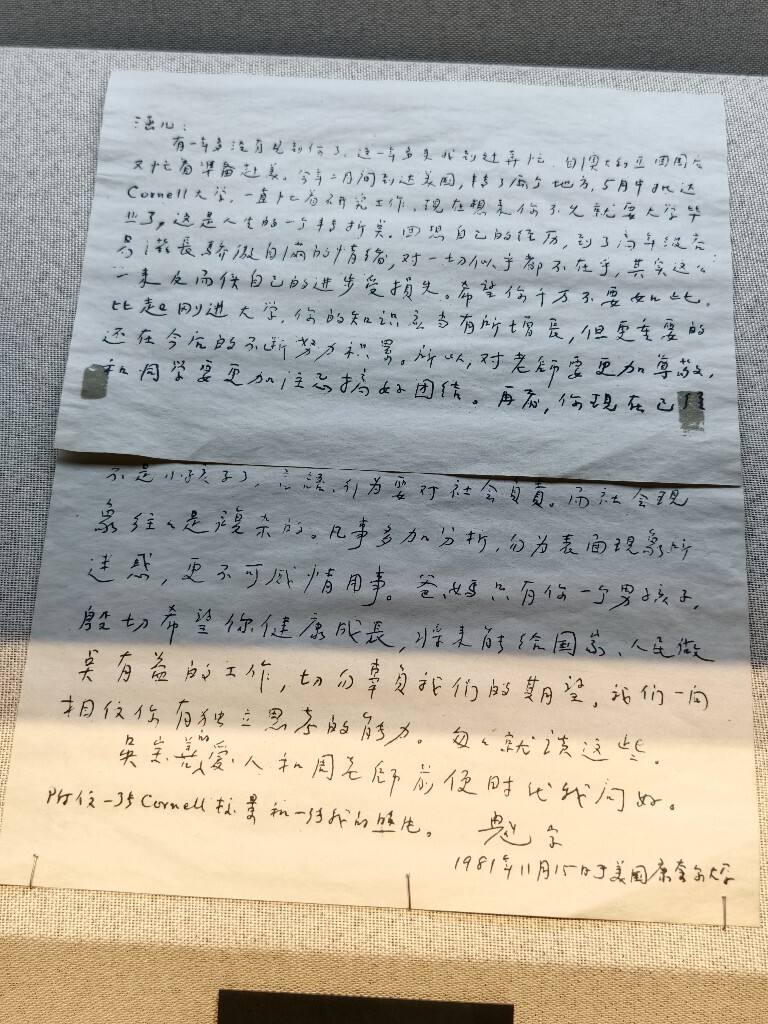 有一年多没有见到你了。这一年多来我到处奔忙。自澳大利亚回国后
又忙着準备赴美。今年二月间到达美国,转了两个地方,5月中抵达
Cornell大学,一直忙着研究工作。现在想来你不久就要大学毕
业了,这是人生的一个转折点。回想自己的经历,到了高年级容
易滋長驕傲自满的情绪,对一切似乎都不在乎,其实这么
一来反而使自己的进步受损失。希望你千万不要如此。
比起刚进大学,你的知识应当有所增長,但更重要的
还在今后的不断努力积累。所以,对老師要更加尊敬,
和同学要更加注意搞好团结。再者,你现在已
不是小孩子了,言語、行为要对社会負責。而社会现
象往々是複杂的。凡事多加分析,勿为表面现象所
迷惑,更不可感情用事。爸妈只有你一个男孩子,
殷切希望你健康成長,将来能给国家、人民做
点有益的工作,切勿辜負我们的期望。我们一向
相信你有独立思考的能力。匆々就谈这些。
吴 的爱人和周老師前便时代我问好。
附信一张Cornell校景和一张我的照片。 字
1981年11月15日于美国康奎尔大学